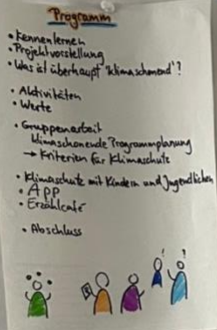 Programm
• Kennenlernen
• Projektvorstellung
• Was ist überhaupt "klimaschonend"?
• Aktivitäten
• Werte
• Gruppenarbeit
klimaschonende Programmplanung
→ Kriterien für Klimaschutz
• Klimaschutz mit Kindern und Jugendlichen
• App
• Erzählcafé
• Abschluss
! ?